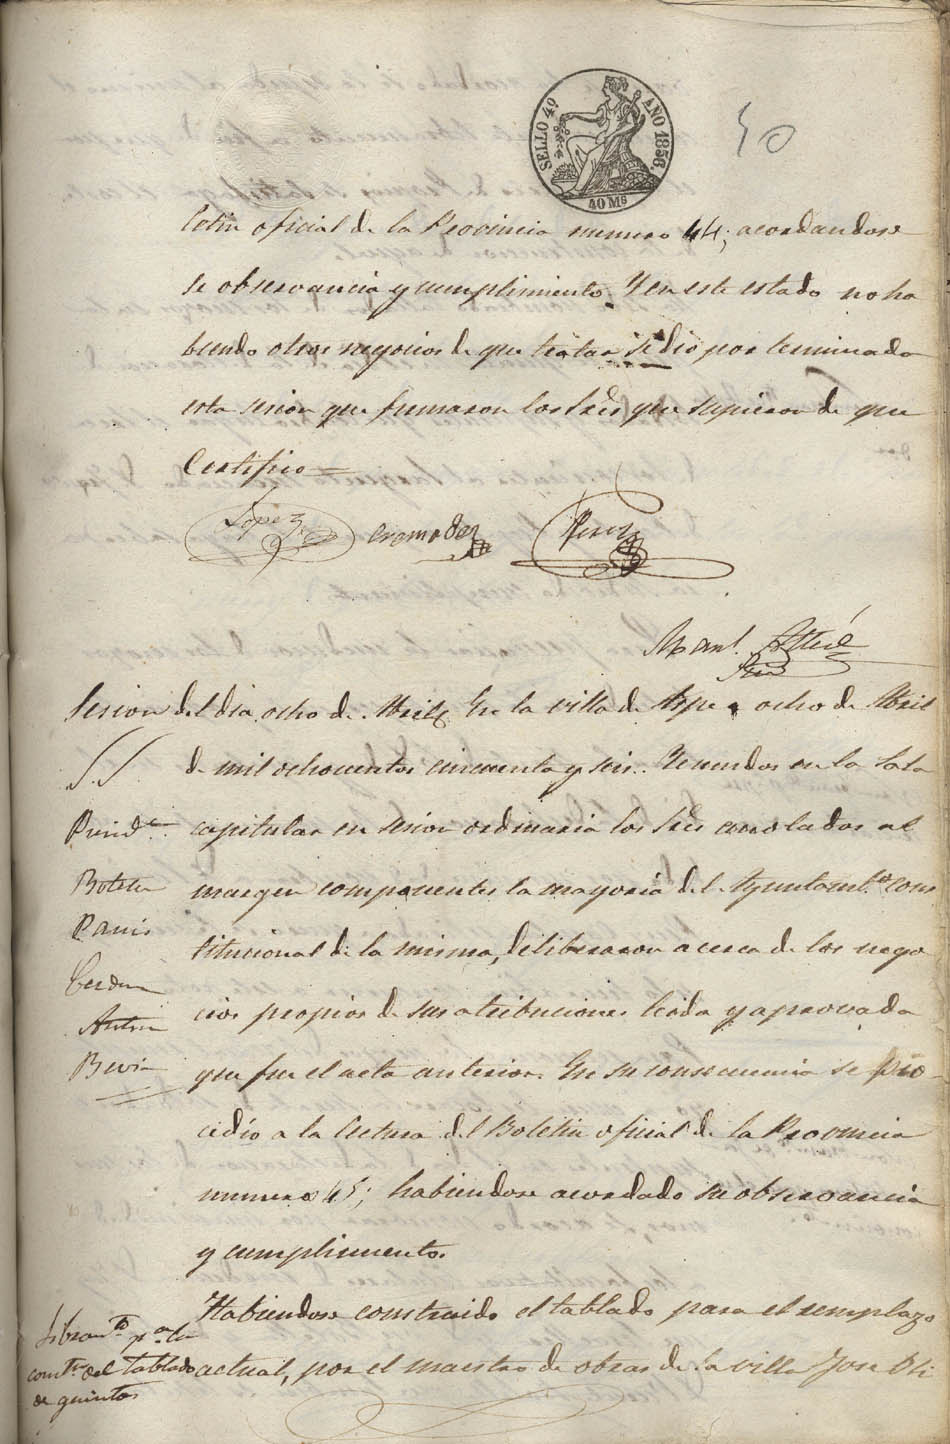 SELLO 4º AÑO 1856.
40 Ms
50
letin oficial de la Provincia numero 44; acordandose
se observancia y cumplimiento. Y en este estado no ha
biendo otros negocios de que tratar se dio por terminada
esta sesion que firmaron los Sres que supieron de que
Certifico=
Lopez Cremades Perez
Manl.
Sesion del dia ocho de Abril
En la villa de Aspe a ocho de Abril
de mil ochocientos cincuenta y seis. Reunidos en la Sala
capitular en sesion ordinaria los Sres anotados al
margen componentes la mayoria del Ayuntamto cons
titucional de la misma, deliberaron acerca de los nego
cios propios de sus atribuciones leida y aprovada
que fue el acta anterior. En su consecuencia se pro-
cedio a la lectura del Boletin oficial de la Provincia
numero 45; habiendose acordado su observancia
y cumplimiento.
S.S.
Presidte
Botella
Pavis
Cerdan
Anton
Bevia
Habiendose construido el tablado para el remplazo
actual, por el maestro de obras de la villa Jose Bli
Libramto pa la
const. del tablado
de quintos